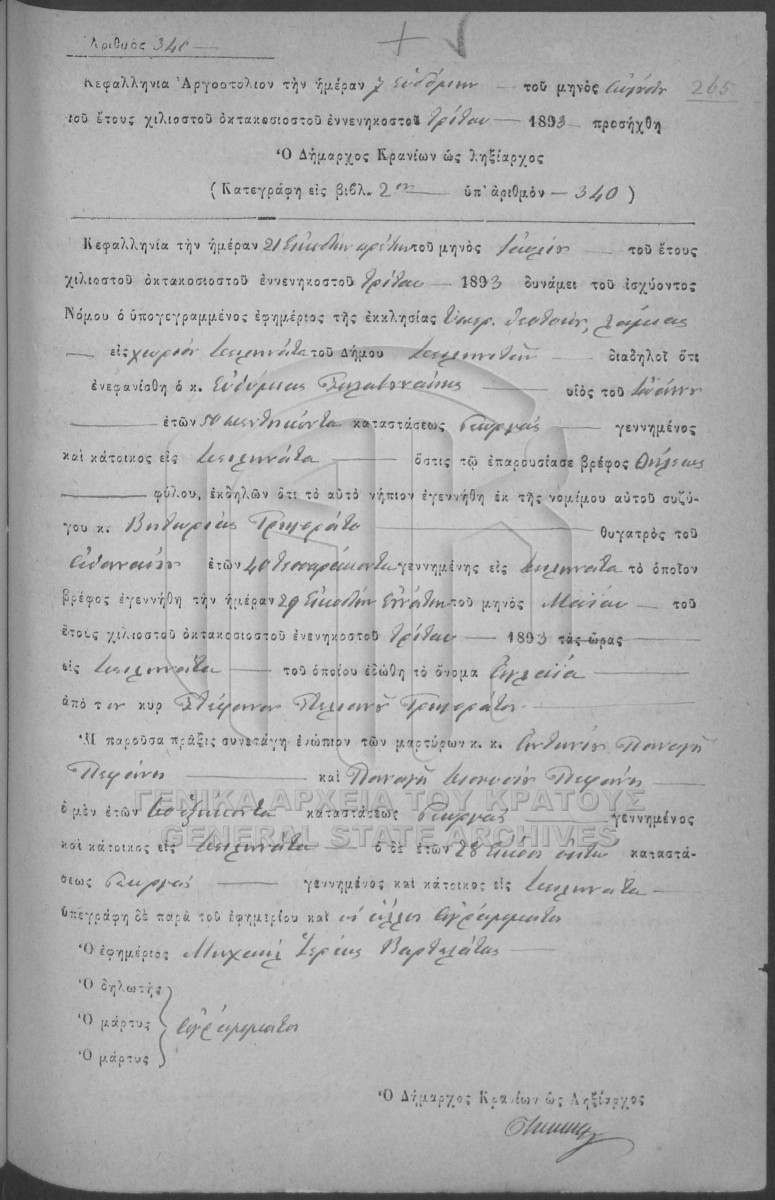 Ἀριθμὸς 340
265
Κεφαλληνία Ἀργοστόλιον τὴν ἡμέραν 7 Ἑβδόμην τοῦ μηνὸς
τοῦ ἔτους χιλιοστοῦ ὀκτακοσιοστοῦ ἐννενηκοστοῦ τρίτου 1893 προσήχθη
Ὁ Δήμαρχος Κρανίων ὡς ληξίαρχος
(Κατεγράφη εἰς βιβλ. 2ον ὑπ' ἀριθμὸν 340)
Κεφαλληνία τὴν ἡμέραν 21 Εἰκοστὴν πρώτην τοῦ μηνὸς τοῦ ἔτους
χιλιοστοῦ ὀκτακοσιοστοῦ ἐννενηκοστοῦ τρίτου 1893 δυνάμει τοῦ ἰσχύοντος
Νόμου ὁ ὑπογεγραμμένος ἐφημέριος τῆς ἐκκλησίας Ὑπερ. Θεοτόκου
εἰς χωρίον τοῦ Δήμου διαδηλοῖ ὅτι
ἐνεφανίσθη ὁ κ. υἱὸς τοῦ
ἐτῶν 50 πεντήκοντα καταστάσεως Γεωργὸς γεννημένος
καὶ κάτοικος εἰς ὅστις τῷ ἐπαρουσίασε βρέφος θήλεως
φύλου, ἐκδηλῶν ὅτι τὸ αὐτὸ νήπιον ἐγεννήθη ἐκ τῆς νομίμου αὐτοῦ συζύ-
γου κ. Βικτωρίας θυγατρὸς τοῦ
Ἀθανασίου ἐτῶν 40 τεσσαράκοντα γεννημένης εἰς τὸ ὁποῖον
βρέφος ἐγεννήθη τὴν ἡμέραν 29 Εἰκοστὴν Ἐννάτην τοῦ μηνὸς Μαΐου τοῦ
ἔτους χιλιοστοῦ ὀκτακοσιοστοῦ ἐνενηκοστοῦ τρίτου 1893 τὰς ὥρας
εἰς τοῦ ὁποίου ἐδώθη τὸ ὄνομα Ἀγλαΐα
ἀπὸ τον κυρ Στέφανον
Ἡ παροῦσα πρᾶξις συνετάγη ἐνώπιον τῶν μαρτύρων κ. κ. Ἀντωνίου Παναγῆ
Πεφάνη καὶ Παναγῆ Πεφάνη
ΓΕΝΙΚΑ ΑΡΧΕΙΑ ΤΟΥ ΚΡΑΤΟΥΣ
ὁ μὲν ἐτῶν 60 ἑξήκοντα καταστάσεως Γεωργὸς γεννημένος
GENERAL STATE ARCHIVES
καὶ κάτοικος εἰς ὁ δὲ ἐτῶν 28 εἴκοσι ὀκτὼ καταστά-
σεως Γεωργὸς γεννημένος καὶ κάτοικος εἰς
ὑπεγράφη δὲ παρὰ τοῦ ἐφημερίου καὶ οἱ ἄλλοι ἀγράμματοι
Ὁ ἐφημέριος Μιχαὴλ Ἱερεὺς
Ὁ δηλωτὴς
Ὁ μάρτυς ἀγράμματοι
Ὁ μάρτυς
Ὁ Δήμαρχος Κρανίων ὡς Ληξίαρχος